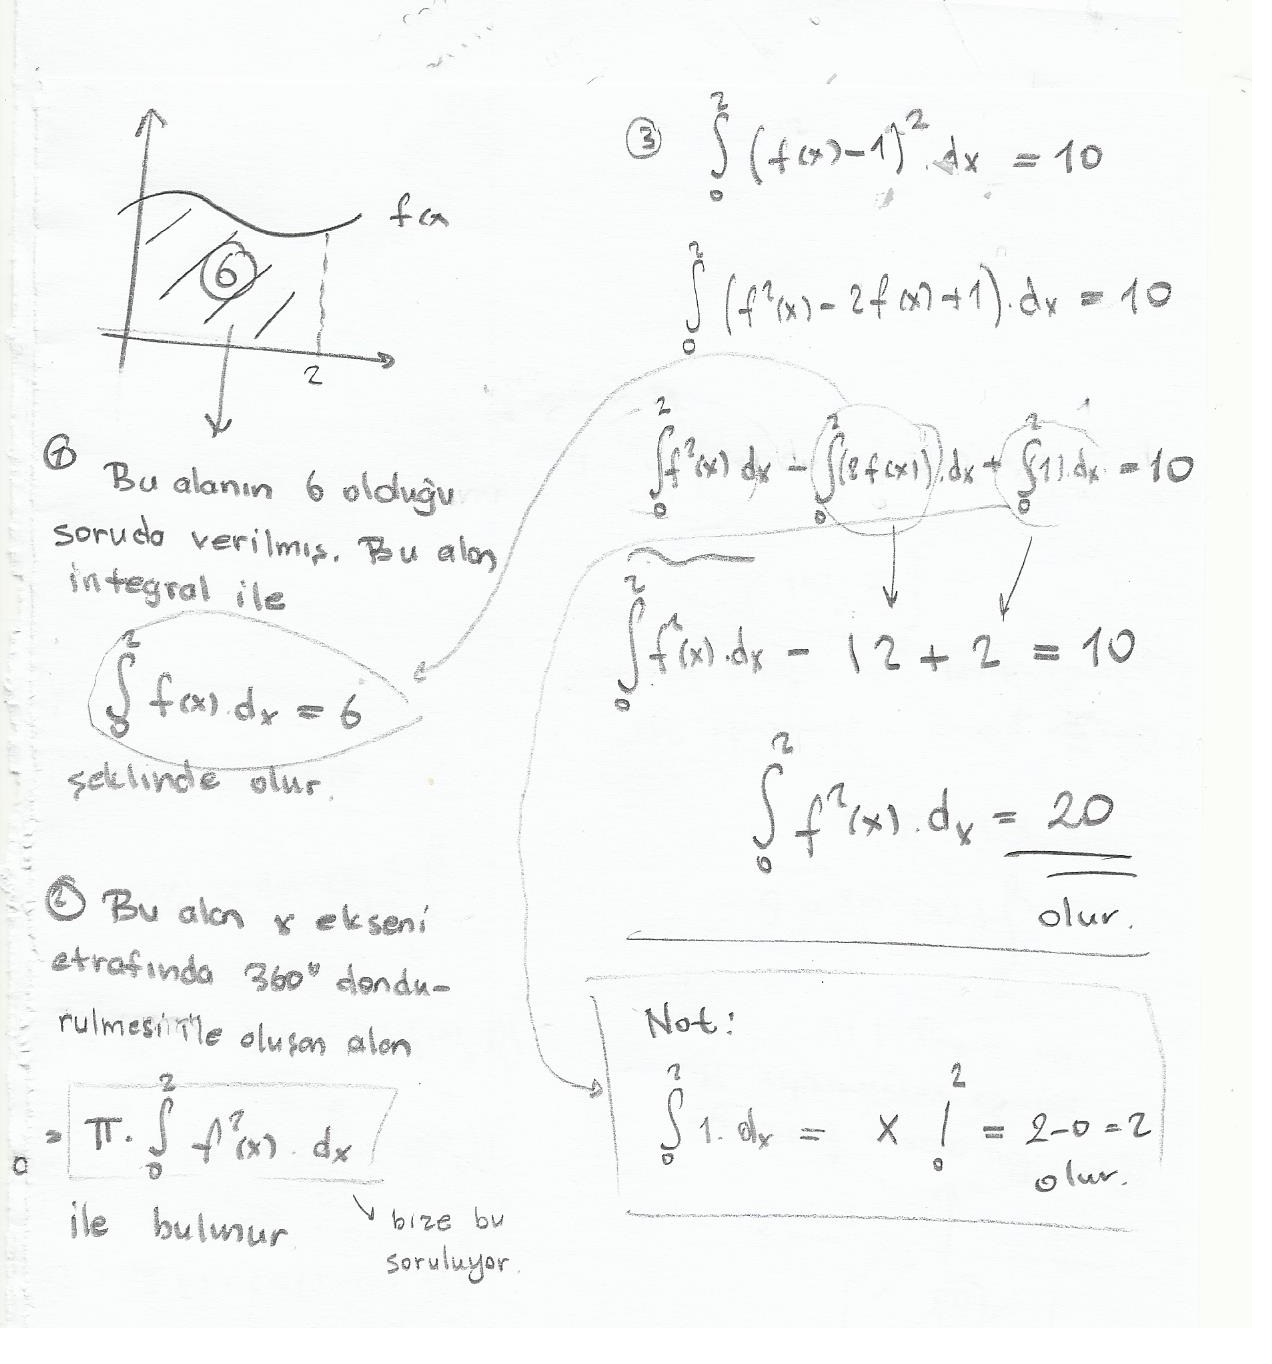 f(x)
6
2
① Bu alanın 6 olduğu
soruda verilmiş. Bu alan
integral ile
∫₀² f(x).dx = 6
şeklinde olur.
② Bu alan x ekseni
etrafında 360° döndü-
rülmesi ile oluşan alan
= π. ∫₀² f²(x).dx
ile bulunur
bize bu
soruluyor.
③ ∫₀² (f(x)-1)².dx = 10
∫₀² (f²(x) - 2f(x)+1).dx = 10
∫₀² f²(x) dx - ∫₀² (2f(x)).dx + ∫₀² (1).dx = 10
∫₀² f²(x).dx - 12 + 2 = 10
∫₀² f²(x).dx = 20
olur.
Not:
∫₀² 1.dx = x |₀² = 2-0=2
olur.